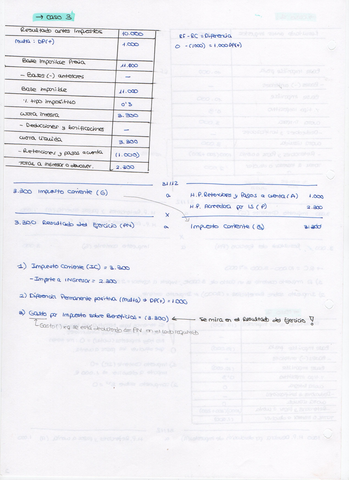 → CASO 3
Resultado antes impuestos 10.000
Multa: DP(+) 1.000
Base Imponible Previa 11.000
- Bases (-) anteriores —
Base imponible 11.000
% tipo impositivo 0'3
Cuota íntegra 3.300
- Deducciones y bonificaciones —
Cuota líquida 3.300
- Retenciones y pagos a cuenta (1.000)
Total a ingresar o devolver 2.300
RF - RC = Diferencia
0 - (1000) = 1.000 DP(+)
31/12
3.300 Impuesto Corriente (G) a H.P. Retenciones y Pagos a cuenta (A) 1.000
H.P. Acreedora por IS (P) 2.300
x
3.300 Resultado del Ejercicio (PN) a Impuesto Corriente (G) 3.300
1) Impuesto Corriente (IC) = 3.300
- Importe a ingresar = 2.300
2) Diferencia Permanente positiva (multa) = DP(+) = 1.000
3) Gasto por Impuesto sobre Beneficios = (3.300) ← Se mira en el Resultado del Ejercicio!